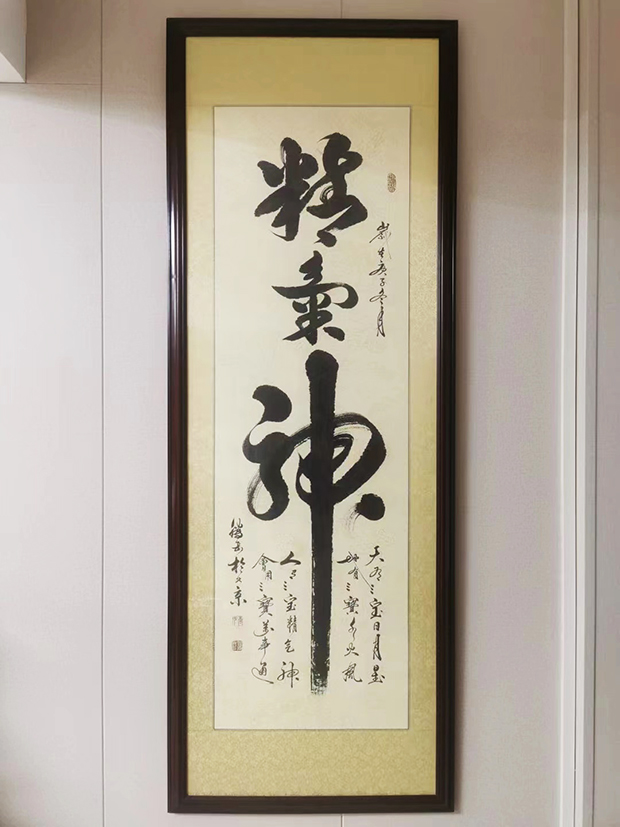 精氣神
歲在庚子冬月
天有三宝日月星
地有三寶水火風
人有三宝精气神
會用三寶萬事通
於北京